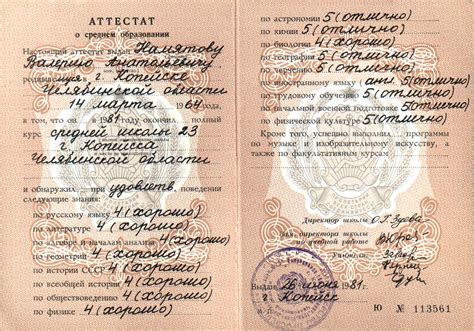 АТТЕСТАТ
о среднем образовании
Настоящий аттестат выдан Намятову
Валерию Анатольевичу
родившемуся в г. Копейске
Челябинской области
14 марта 1964
в том, что он в 1981 году окончил полный курс
средней школы 23
г. Копейска
Челябинской области
и обнаружил при удовлетв. поведении
следующие знания:
по русскому языку 4 (хорошо)
по литературе 4 (хорошо)
по алгебре и началам анализа 4 (хорошо)
по геометрии 4 (хорошо)
по истории СССР 4 (хорошо)
по всеобщей истории 4 (хорошо)
по обществоведению 4 (хорошо)
по физике 4 (хорошо)
по астрономии 5 (отлично)
по химии 5 (отлично)
по биологии 4 (хорошо)
по географии 5 (отлично)
по черчению 5 (отлично)
по иностранному языку англ 5 (отлично)
по трудовому обучению 5 (отлично)
по начальной военной подготовке 5 (отлично)
по физической культуре 5 (отлично)
Кроме того, успешно выполнил программы
по музыке и изобразительному искусству, а
также по факультативным курсам
Директор школы О.Г. Зуева
Заместители директора школы
по учебной работе
Учителя:
Выдан 26 июня 1981 г.
г. Копейск
Ю № 113561